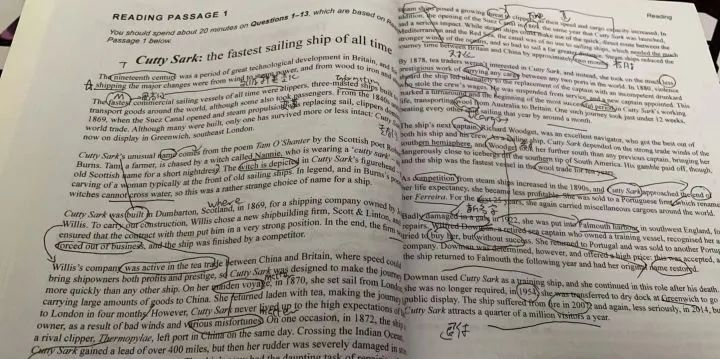 READING PASSAGE 1
You should spend about 20 minutes on Questions 1–13, which are based on
Passage 1 below.
Cutty Sark: the fastest sailing ship of all time
The nineteenth century was a period of great technological development in Britain, and
shipping the major changes were from wind to steam power, and from wood to iron and
The fastest commercial sailing vessels of all time were clippers, three-masted ships built
transport goods around the world, although some also took passengers. From the 1840s
1869, when the Suez Canal opened and steam propulsion was replacing sail, clippers
world trade. Although many were built, only one has survived more or less intact: Cutty
now on display in Greenwich, southeast London.
Cutty Sark's unusual name comes from the poem Tam O'Shanter by the Scottish poet
Burns. Tam, a farmer, is chased by a witch called Nannie, who is wearing a 'cutty sark'
old Scottish name for a short nightdress. The witch is depicted in Cutty Sark's figurehead
carving of a woman typically at the front of old sailing ships. In legend, and in Burns's
witches cannot cross water, so this was a rather strange choice of name for a ship.
where
Cutty Sark was built in Dumbarton, Scotland, in 1869, for a shipping company owned by
Willis. To carry out construction, Willis chose a new shipbuilding firm, Scott & Linton,
ensured that the contract with them put him in a very strong position. In the end, the firm
forced out of business, and the ship was finished by a competitor.
Willis's company was active in the tea trade between China and Britain, where speed could
bring shipowners both profits and prestige, so Cutty Sark was designed to make the journey
more quickly than any other ship. On her maiden voyage, in 1870, she set sail from London
carrying large amounts of goods to China. She returned laden with tea, making the journey
to London in four months. However, Cutty Sark never lived up to the high expectations of
owner, as a result of bad winds and various misfortunes. On one occasion, in 1872, the ship
a rival clipper, Thermopylae, left port in China on the same day. Crossing the Indian Ocean
Cutty Sark gained a lead of over 400 miles, but then her rudder was severely damaged in
Reading
steam ships posed a growing threat to clippers, as their speed and cargo capacity increased. In
addition, the opening of the Suez Canal in 1869, the same year that Cutty Sark was launched,
had a serious impact. While steam ships could make use of the quick, direct route between the
Mediterranean and the Red Sea, the canal was of no use to sailing ships, which needed the much
stronger winds of the oceans, and so had to sail a far greater distance. Steam ships reduced the
journey time between Britain and China by approximately two months.
By 1878, tea traders weren't interested in Cutty Sark, and instead, she took on the much less
prestigious work of carrying any cargo between any two ports in the world. In 1880, violence
aboard the ship led ultimately to the replacement of the captain with an incompetent drunkard
who stole the crew's wages. He was suspended from service, and a new captain appointed. This
marked a turnaround and the beginning of the most successful period in Cutty Sark's working
life, transporting wool from Australia to Britain. One such journey took just under 12 weeks,
beating every other ship sailing that year by around a month.
The ship's next captain, Richard Woodget, was an excellent navigator, who got the best out of
both his ship and his crew. As a sailing ship, Cutty Sark depended on the strong trade winds of the
southern hemisphere, and Woodget took her further south than any previous captain, bringing her
dangerously close to icebergs off the southern tip of South America. His gamble paid off, though,
and the ship was the fastest vessel in the wool trade for ten years.
As competition from steam ships increased in the 1890s, and Cutty Sark approached the end of
her life expectancy, she became less profitable. She was sold to a Portuguese firm, which renamed
her Ferreira. For the next 25 years, she again carried miscellaneous cargoes around the world.
Badly damaged in a gale in 1922, she was put into Falmouth harbour in southwest England, for
repairs. Wilfred Dowman, a retired sea captain who owned a training vessel, recognised her and
tried to buy her, but without success. She returned to Portugal and was sold to another Portuguese
company. Dowman was determined, however, and offered a high price: this was accepted, and
the ship returned to Falmouth the following year and had her original name restored.
Dowman used Cutty Sark as a training ship, and she continued in this role after his death.
she was no longer required, in 1954, she was transferred to dry dock at Greenwich to go
public display. The ship suffered from fire in 2007, and again, less seriously, in 2014, but
Cutty Sark attracts a quarter of a million visitors a year.